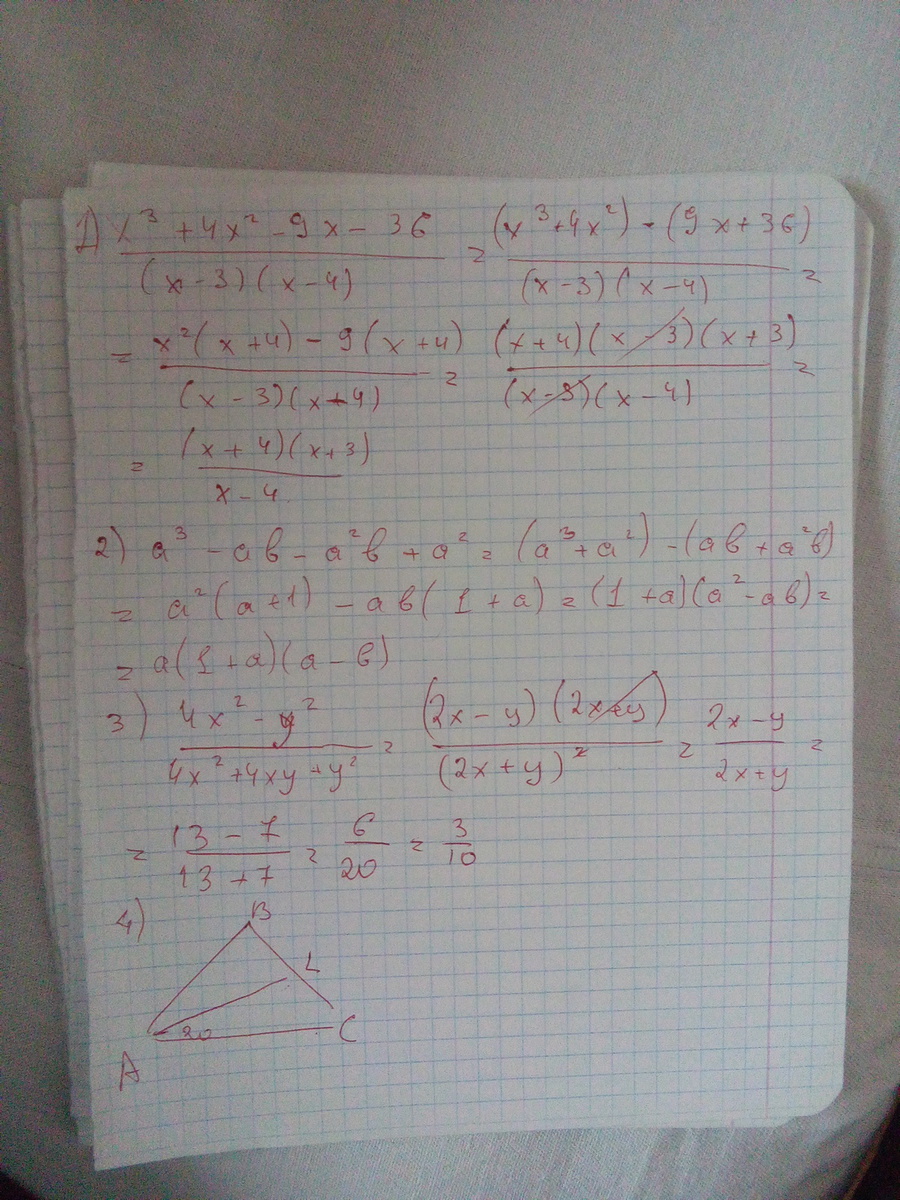 1) x³ + 4x² - 9x - 36 / (x - 3)(x - 4) = (x³ + 4x²) - (9x + 36) / (x - 3)(x - 4) =
= x²(x + 4) - 9(x + 4) / (x - 3)(x - 4) = (x + 4)(x - 3)(x + 3) / (x - 3)(x - 4) =
= (x + 4)(x + 3) / x - 4
2) a³ - ab - a²b + a² = (a³ + a²) - (ab + a²b)
= a²(a + 1) - ab(1 + a) = (1 + a)(a² - ab) =
= a(1 + a)(a - b)
3) 4x² - y² / 4x² + 4xy + y² = (2x - y)(2x + y) / (2x + y)² = 2x - y / 2x + y =
= 13 - 7 / 13 + 7 = 6 / 20 = 3 / 10
4)
B
L
20
C
A